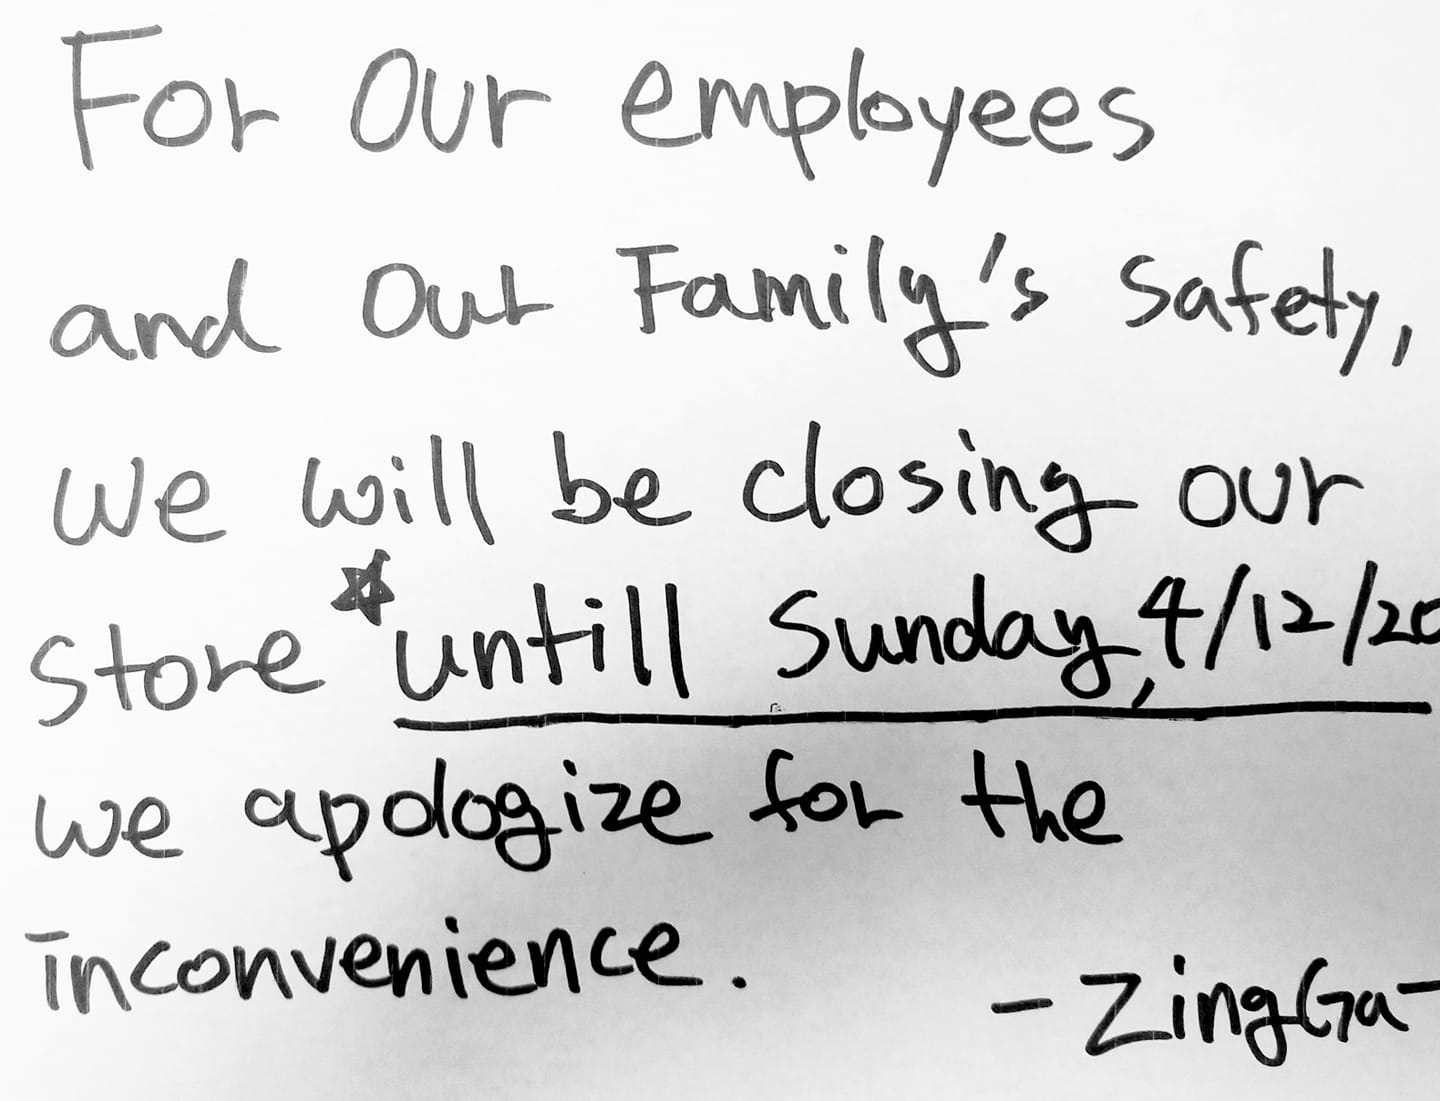 For Our employees
and Our Family's safety,
we will be closing our
store ★untill Sunday, 4/12/20
we apologize for the
inconvenience.
- ZingGa -